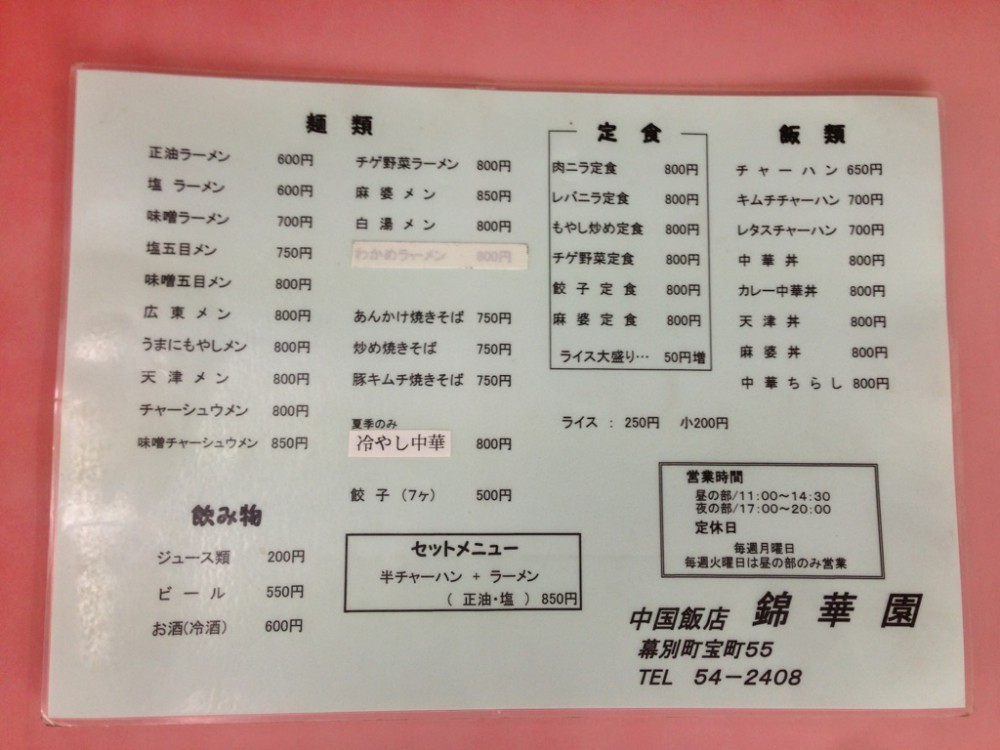 麺類
正油ラーメン 600円
塩 ラーメン 600円
味噌ラーメン 700円
塩五目メン 750円
味噌五目メン 800円
広東メン 800円
うまにもやしメン 800円
天津メン 800円
チャーシュウメン 800円
味噌チャーシュウメン 850円
チゲ野菜ラーメン 800円
麻婆メン 850円
白湯メン 800円
わかめラーメン 800円
あんかけ焼きそば 750円
炒め焼きそば 750円
豚キムチ焼きそば 750円
夏季のみ
冷やし中華 800円
餃子(7ヶ) 500円
定食
肉ニラ定食 800円
レバニラ定食 800円
もやし炒め定食 800円
チゲ野菜定食 800円
餃子定食 800円
麻婆定食 800円
ライス大盛り… 50円増
飯類
チャーハン 650円
キムチチャーハン 700円
レタスチャーハン 700円
中華丼 800円
カレー中華丼 800円
天津丼 800円
麻婆丼 800円
中華ちらし 800円
ライス : 250円 小200円
飲み物
ジュース類 200円
ビール 550円
お酒(冷酒) 600円
セットメニュー
半チャーハン + ラーメン
( 正油・塩 ) 850円
営業時間
昼の部/11:00～14:30
夜の部/17:00～20:00
定休日
毎週月曜日
毎週火曜日は昼の部のみ営業
中国飯店 錦華園
幕別町宝町55
TEL 54-2408